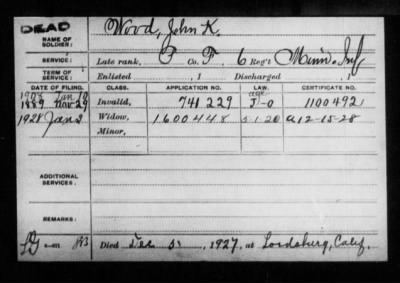 DEAD
NAME OF SOLDIER: Wood, John K.
SERVICE: Late rank, P Co. F, 6 Reg't Minn. Inf
TERM OF SERVICE: Enlisted , 1 Discharged , 1
DATE OF FILING. CLASS. APPLICATION NO. LAW. CERTIFICATE NO.
1908 Jan 10 age
1889 Nov 29 Invalid, 741229 J-O 1100492
1928 Jan 3 Widow, 1600448 5 1 20 A12-15-28
Minor,
ADDITIONAL SERVICES:
REMARKS:
Died Dec 31, 1927, at Lordsburg, Calif.